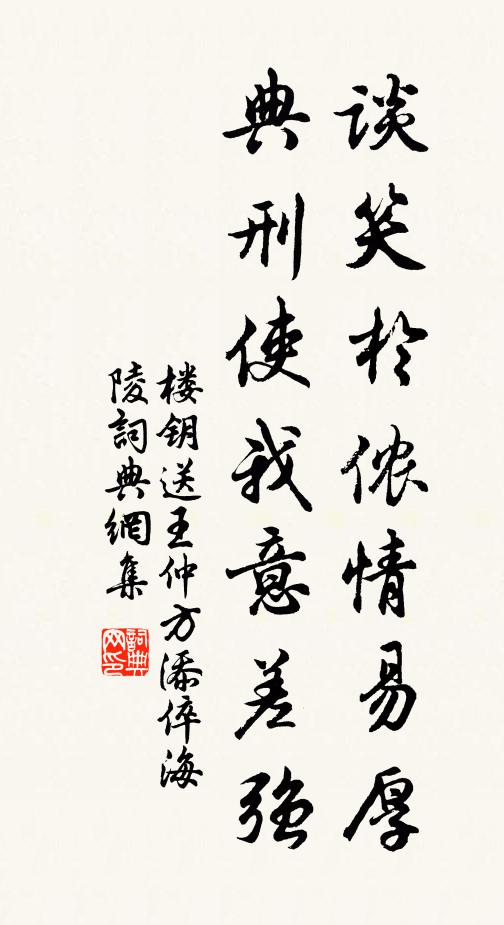 谈笑於侬情易厚
典刑使我意差强
楼钥送王仲方添倅海
陵詞典網集
詞典
网印